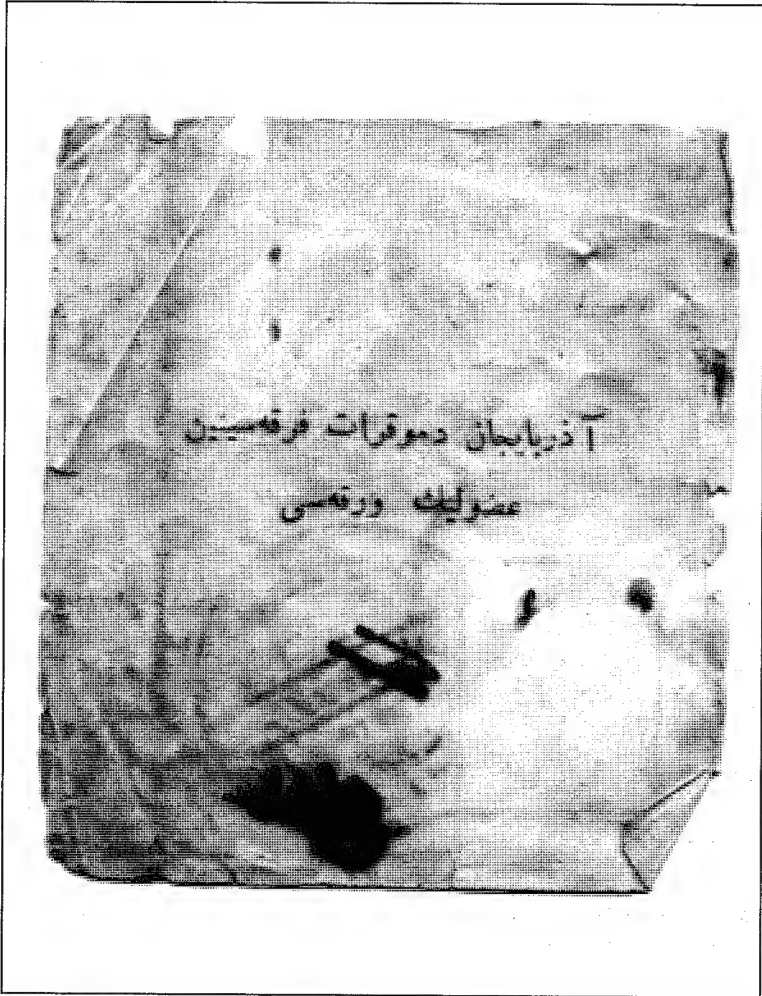 آذربایجان دموقرات فرقه‌سینین
عضولیك ورقه‌سی